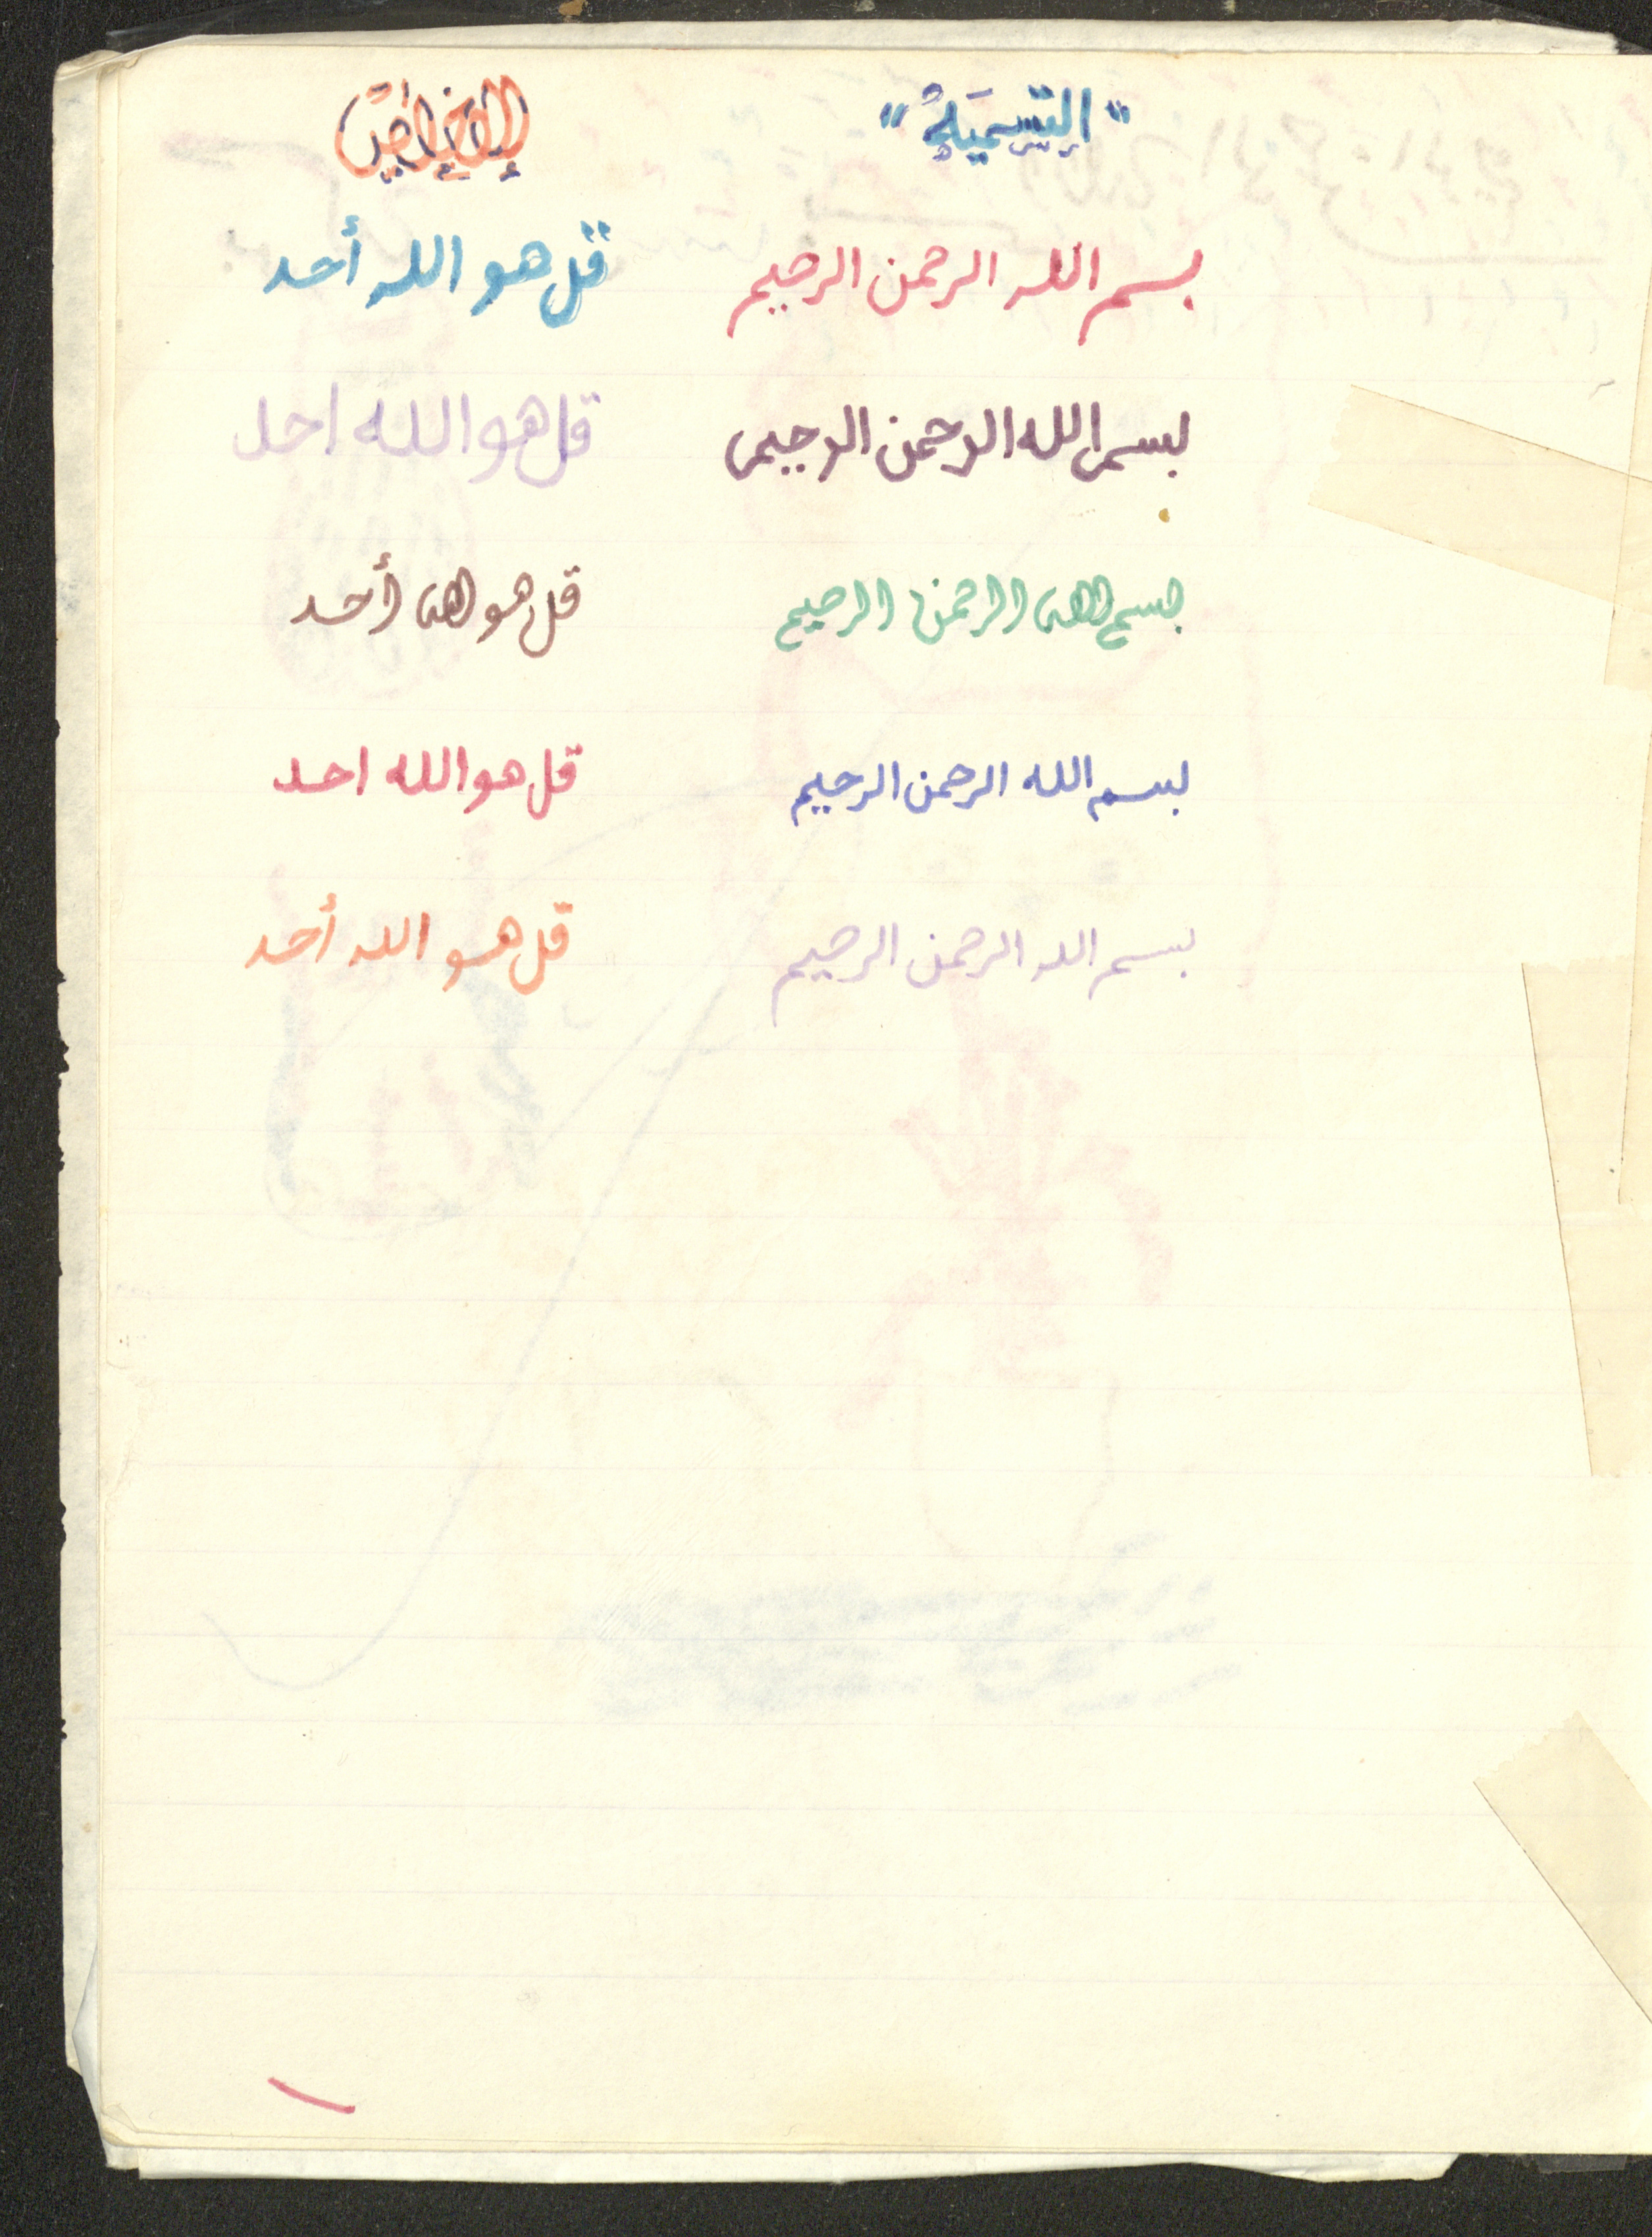 "التسمية"
بسم الله الرحمن الرحيم
بسم الله الرحمن الرحيم
بسم الله الرحمن الرحيم
بسم الله الرحمن الرحيم
بسم الله الرحمن الرحيم
الإخلاص
قل هو الله أحد
قل هو الله احد
قل هو الله أحد
قل هو الله احد
قل هو الله أحد